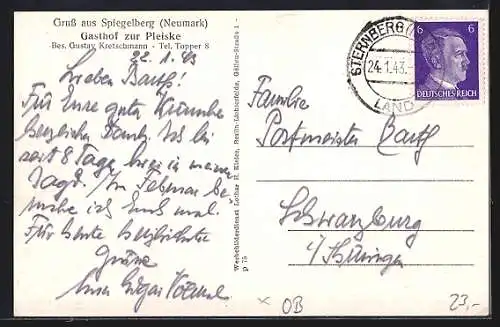 Gruß aus Spiegelberg (Neumark)
Gasthof zur Pleiske
Bes. Gustav Kretschmann - Tel. Topper 8
22.1.43
Lieben Barth!
Für Eure guten Wünsche
herzlichen Dank. Ich bin
seit 8 Tage hier in meiner
Jagd. Im Februar be-
suche ich Euch mal.
Für heute herzlichste
Grüsse
Euer Edgar
Werbebilderdienst Lothar R. Berlin-Lichterfelde, Gäßler-Straße 1 -
P 75
STERNBERG
24.1.43.
LAND
6 6
DEUTSCHES REICH
Familie
Postmeister Barth
Schwarzburg
i/Thüringen
x OB 23,-